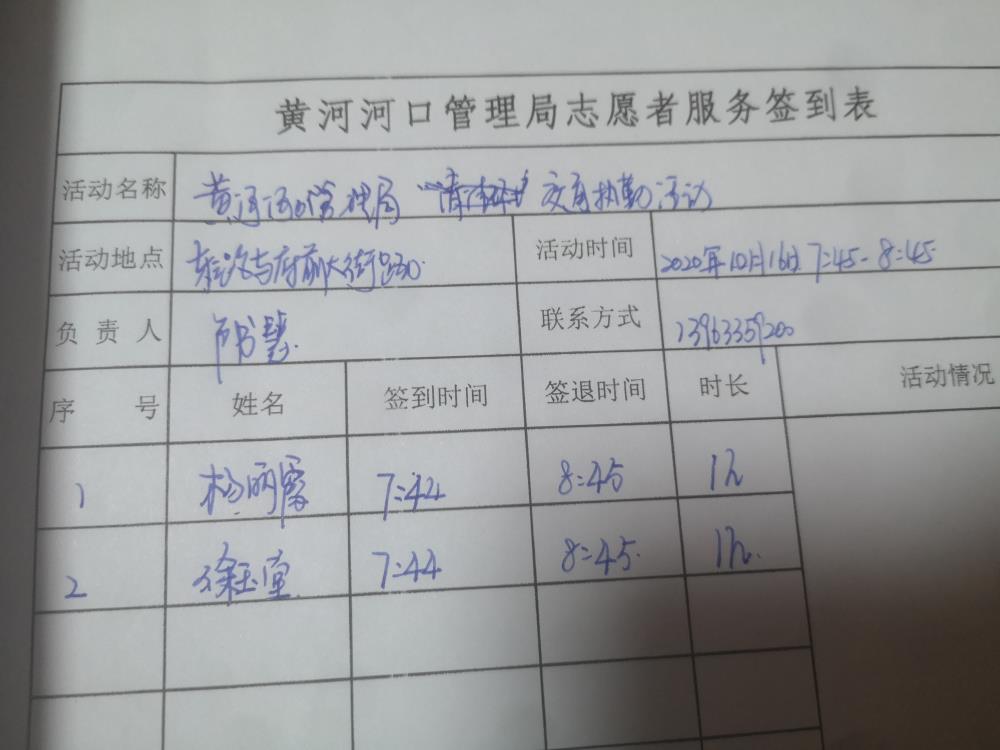 黄河河口管理局志愿者服务签到表
活动名称 黄河河口管理局 交通执勤活动
活动地点 东二路与府前大街路口 活动时间 2020年10月16日 7:45-8:45
负责人 联系方式 13963359200
序号 姓名 签到时间 签退时间 时长 活动情况
1 杨丽霞 7:44 8:45 1h
2 徐玉堂 7:44 8:45 1h